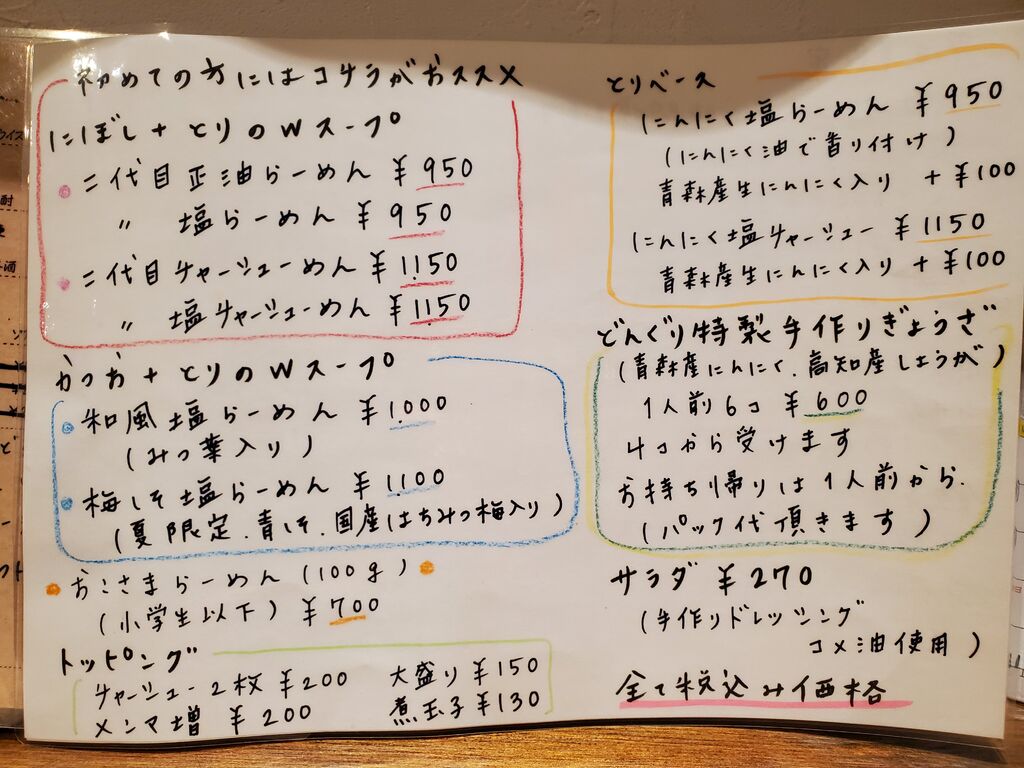 初めての方にはコチラがおススメ
にぼし+とりのWスープ
二代目正油らーめん ¥950
〃 塩らーめん ¥950
二代目チャーシューめん ¥1150
〃 塩チャーシューめん ¥1150
かつお+とりのWスープ
和風塩らーめん ¥1000
(みつ葉入り)
梅しそ塩らーめん ¥1100
(夏限定.青しそ.国産はちみつ梅入り)
おこさまらーめん(100g)
(小学生以下) ¥700
トッピング
チャーシュー2枚 ¥200 大盛り ¥150
メンマ増 ¥200 煮玉子 ¥130
とりベース
にんにく塩らーめん ¥950
(にんにく油で香り付け)
青森産生にんにく入り +¥100
にんにく塩チャーシュー ¥1150
青森産生にんにく入り +¥100
どんぐり特製手作りぎょうざ
(青森産にんにく.高知産しょうが)
1人前6コ ¥600
4コから受けます
お持ち帰りは1人前から.
(パック代頂きます)
サラダ ¥270
(手作りドレッシング
コメ油使用)
全て税込み価格